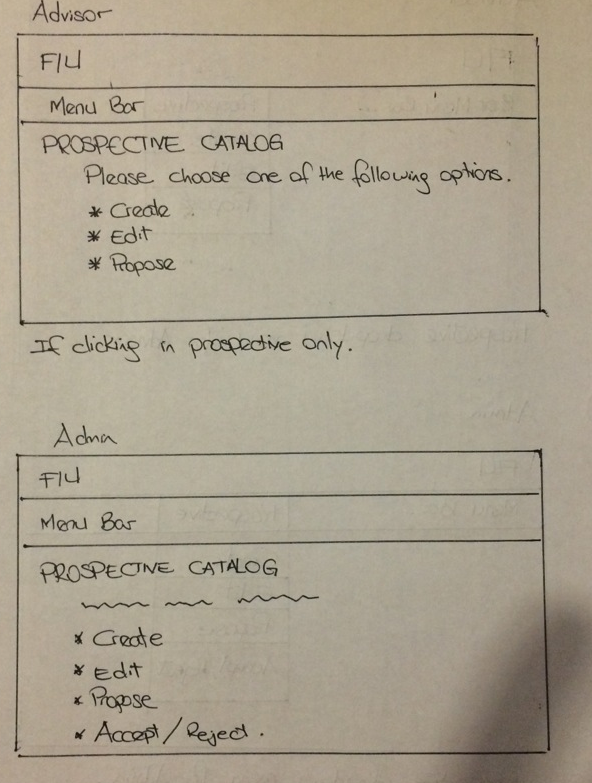 Advisor
FIU
Menu Bar
PROSPECTIVE CATALOG
Please choose one of the following options.
* Create
* Edit
* Propose
If clicking in prospective only.
Admn
FIU
Menu Bar
PROSPECTIVE CATALOG
* Create
* Edit
* Propose
* Accept / Reject.